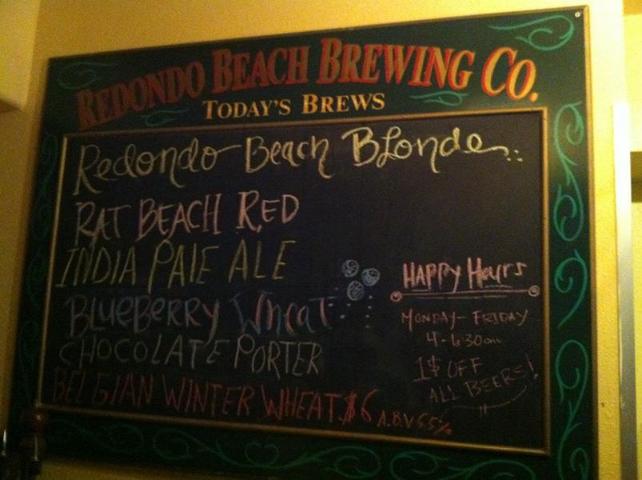 REDONDO BEACH BREWING CO.
TODAY'S BREWS
Redondo Beach Blonde
RAT BEACH RED
INDIA PALE ALE
BLUEBERRY Wheat
CHOCOLATE PORTER
BELGIAN WINTER WHEAT $6 A.B.V 6.5%
HAPPY Hours
MONDAY-FRIDAY
4-6:30
1$ OFF
ALL BEERS!